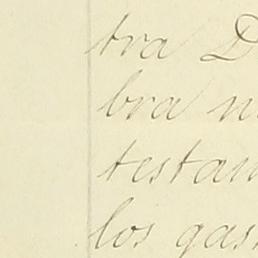 tra D
bra n
testan
los gast